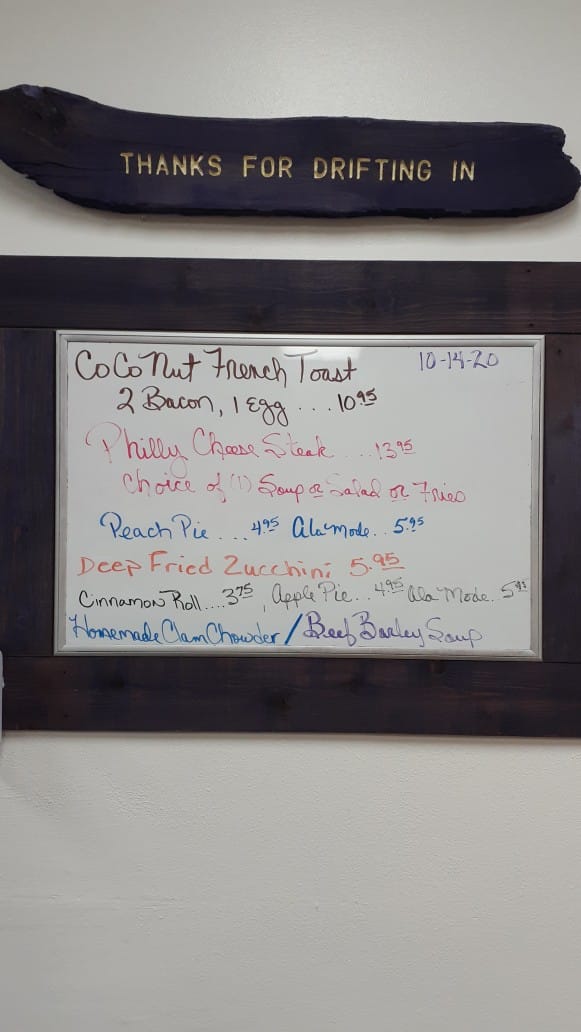 THANKS FOR DRIFTING IN
CoCoNut French Toast 10-14-20
2 Bacon, 1 Egg ... 10.95
Philly Cheese Steak ... 13.95
Choice of (1) Soup or Salad or Fries
Peach Pie .... 4.95 Ala Mode.. 5.95
Deep Fried Zucchini 5.95
Cinnamon Roll....3.75, Apple Pie... 4.95 Ala Mode.. 5.95
Homemade Clam Chowder / Beef Barley Soup